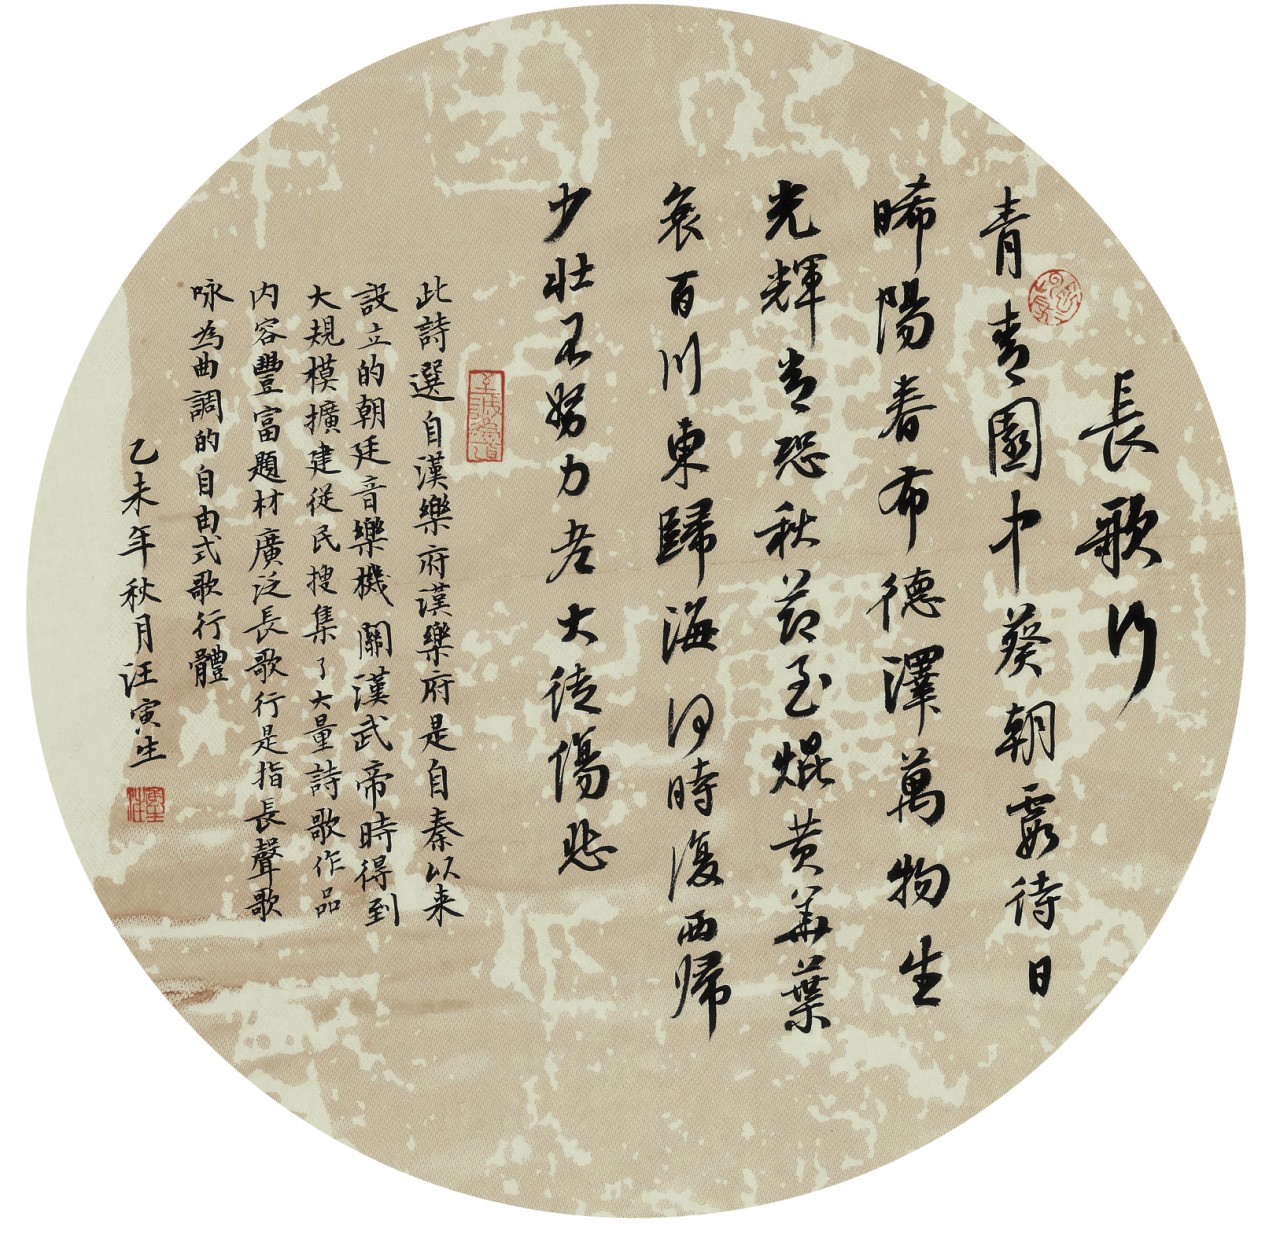 長歌行
青青園中葵朝露待日
晞陽春布德澤萬物生
光輝常恐秋節至焜黃華葉
衰百川東歸海何時復西歸
少壯不努力老大徒傷悲
此詩選自漢樂府漢樂府是自秦以来
設立的朝廷音樂機關漢武帝時得到
大規模擴建從民搜集了大量詩歌作品
内容豐富題材廣泛長歌行是指長聲歌
咏為曲調的自由式歌行體
乙未年秋月汪寅生